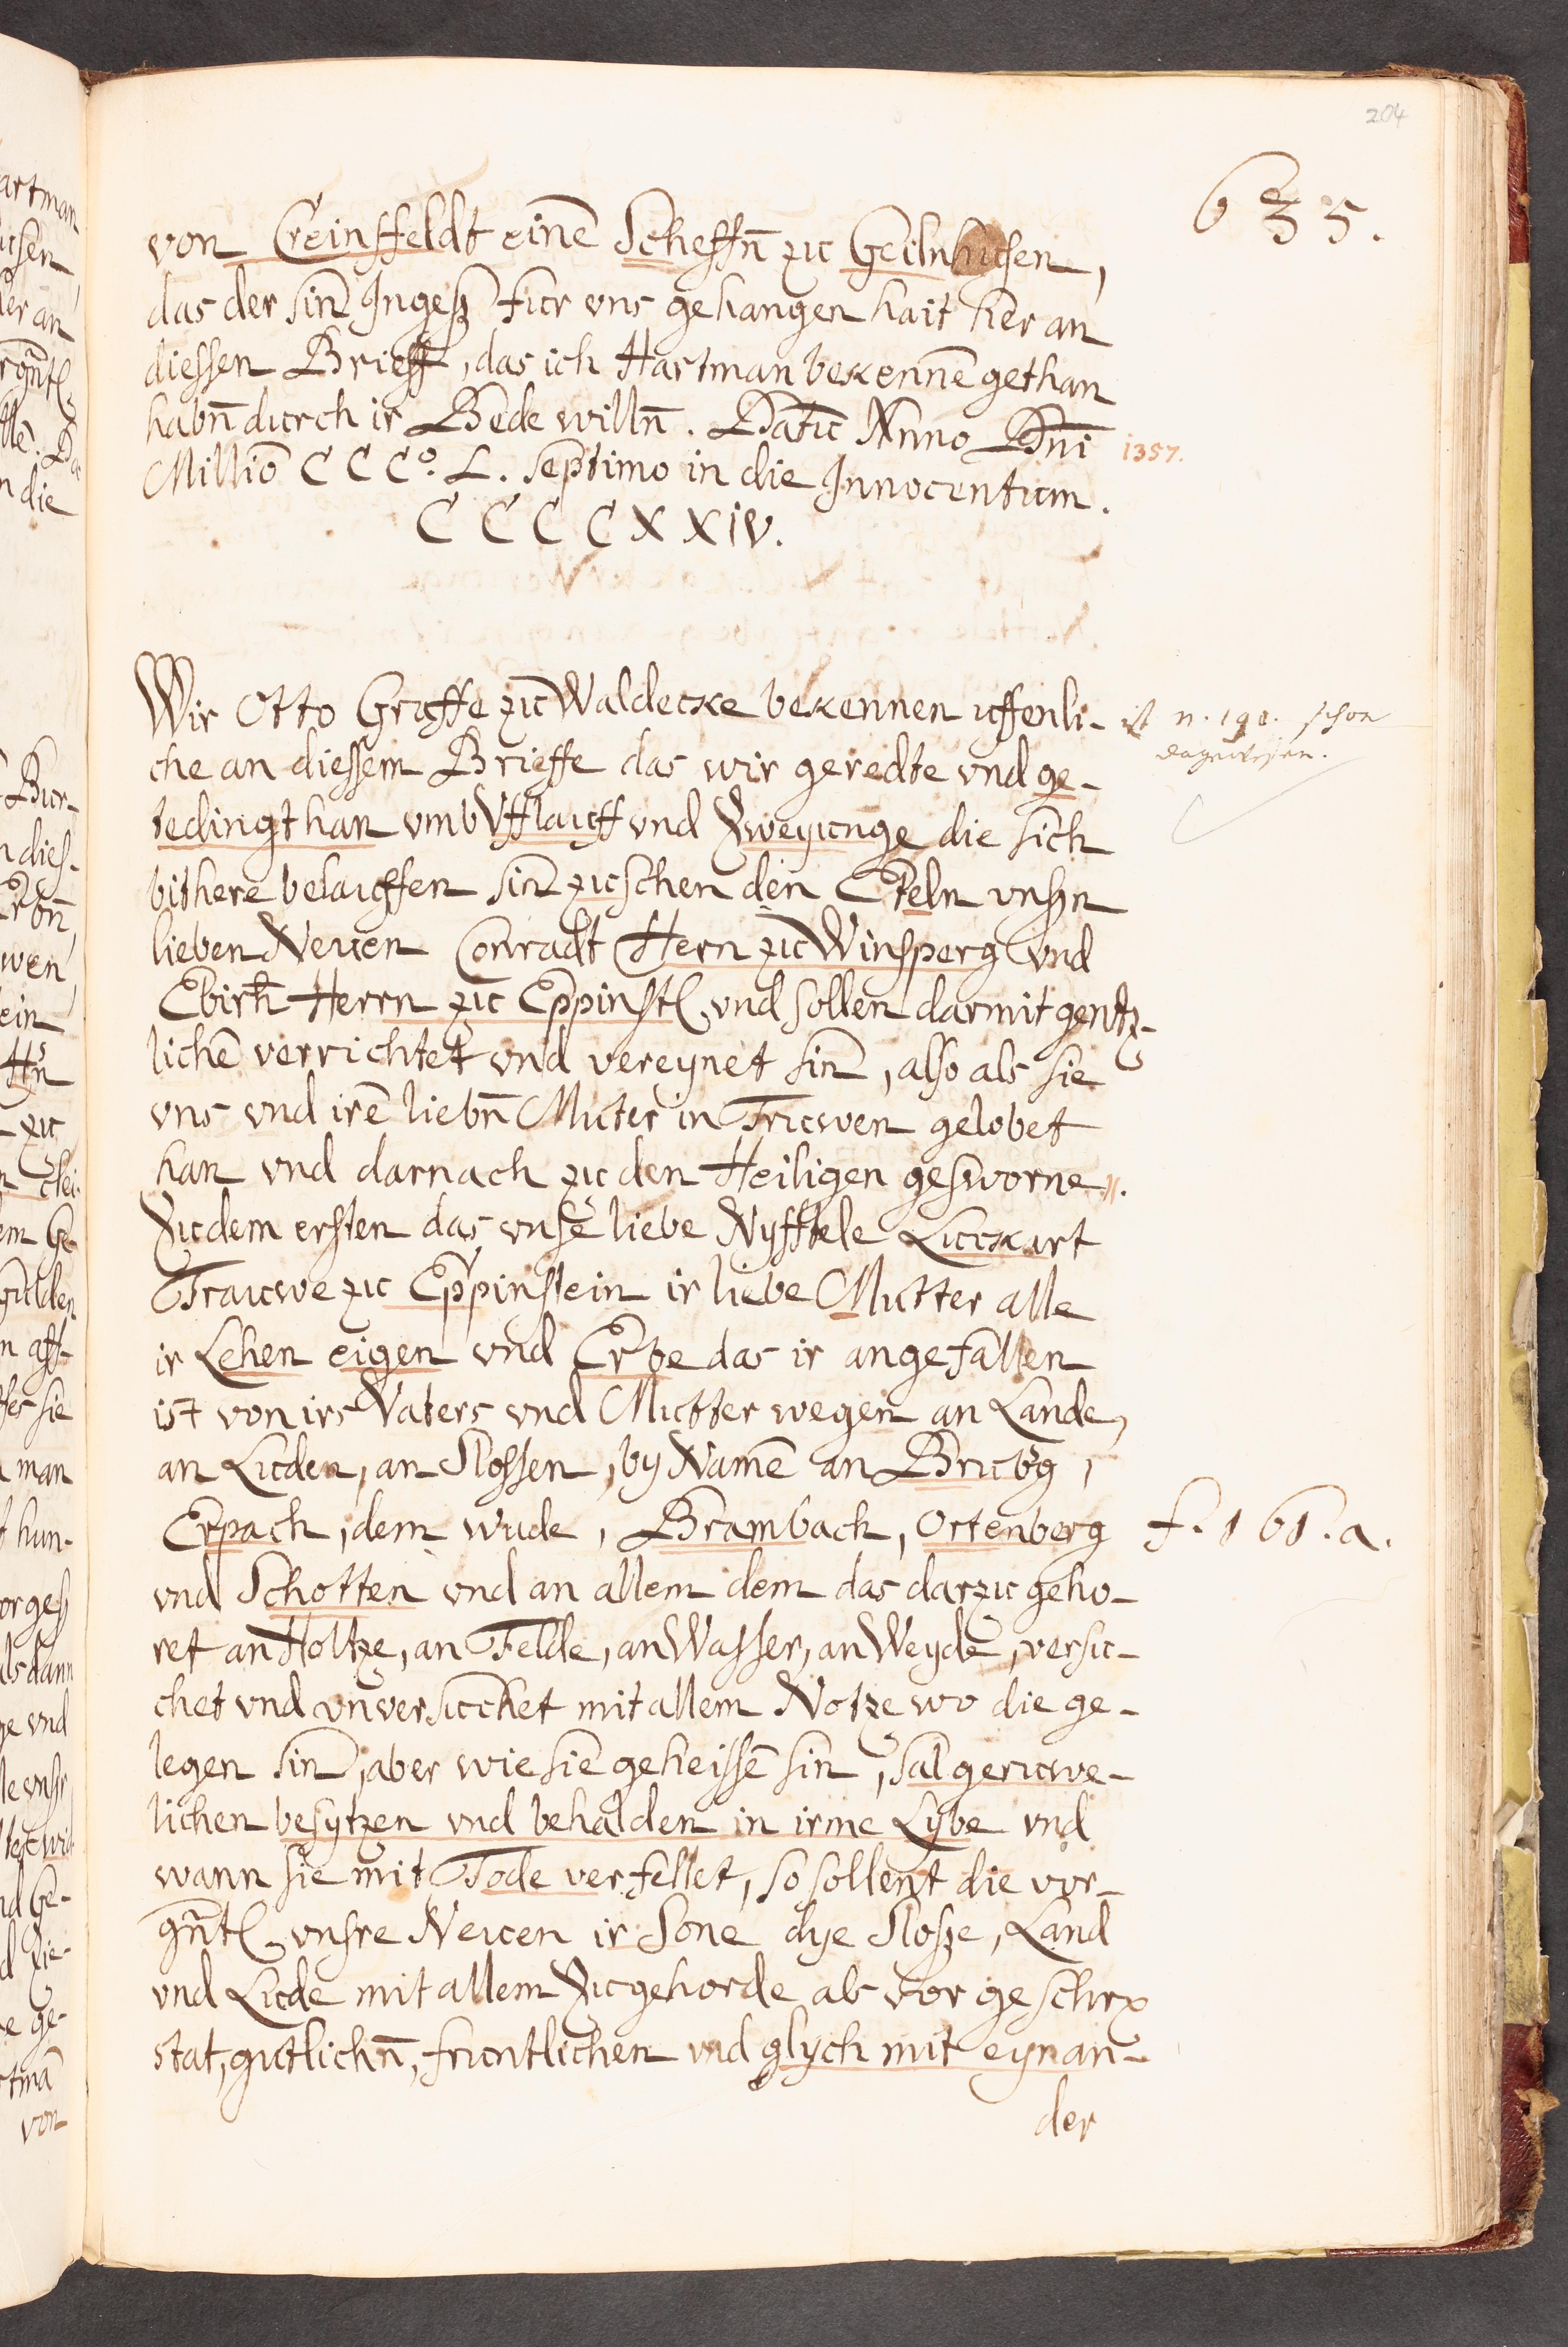 204
635.
von Creinsfeldt eine Scheffn zu Geilnhusen,
das der sin Ingeß fur vns gehangen hait her an
diessen Brieff, das ich Hartman bekenne gethan
habn durch ir Bede willn. Datu Anno Dni
1357.
Millio CCCo. L. septimo in die Innocentum.
CCCCXXIV.
Wir Otto Graffe zu Waldecke bekennen uffenli-
ist n. 190. schon
dagewesen.
che an diessem Brieffe das wir geredte vnd ge-
tedingt han vmb Vfflauff vnd Zweyunge die sich
bithere belauffen sin zuschen den Eteln vnsn
lieben Neuen Conradt Hern zu Winsperg vnd
Ebirh Herrn zu Eppinst vnd sollen darmit gentz-
liche verrichtet vnd vereynet sin, also als sie
vns vnd ire liebn Muter in Truwen gelobet
han vnd darnach zu den Heiligen gesworne.
Zu dem ersten das vnse liebe Nyfftele Luckart
Frauwe zu Eppinstein ir liebe Mutter alle
ir Lehen eigen vnd Erbe das ir angefallen
ist von irs Vaters vnd Mutter wegen an Lande,
an Luden, an Slossen, by Name an Brubg,
Erpach, dem wude, Brambach, Ortenberg
f. 161. a.
vnd Schotten vnd an allem dem das darzu geho-
ret an Holtze, an Felde, an Wasser, an Weyde, versu-
chet vnd vnversucchet mit allem Notze wo die ge-
legen sin, aber wie sie geheisse sin, sal geruwe-
lichen besytzen vnd behalden in irme Lybe vnd
wann sie mit Tode verfellet, so sollent die vor-
gnt vnsre Neuen ir Sone dye Sloße, Land
vnd Lude mit allem Zugehorde als vor geschr
stat, gutlichn, fruntlichen vnd glych mit eynan-
der